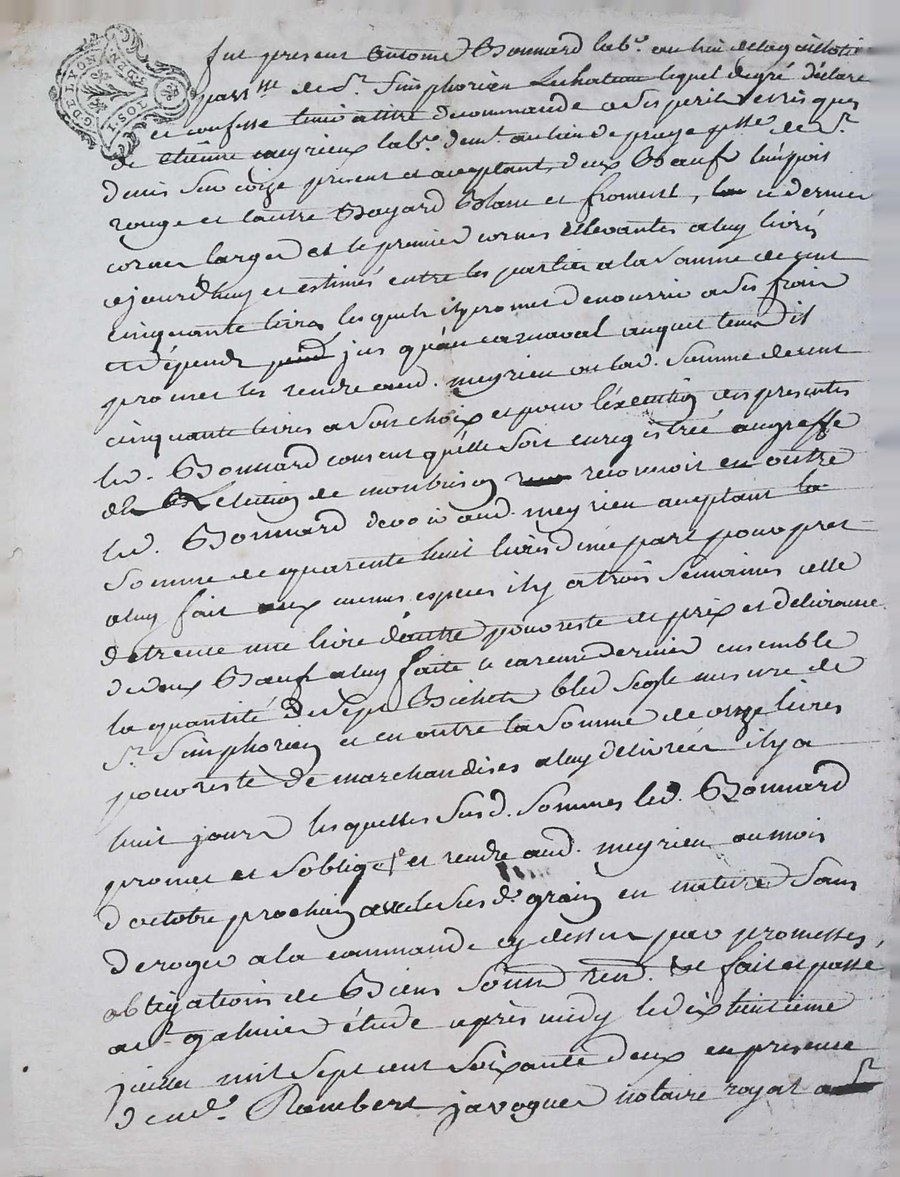 G. DE LYON
NEUF
I. SOL
fut present antoine Bonnard labr. au lieu de la
parr.sse de St. Simphorien Lechateau lequel degré déclare
et confesse tenir atitre de commande a ses perils et risques
de etienne meyrieux labr. demt. au lieu de psse de St.
denis sur coize present et aceptant, deux Bœufs l'un pois
rouge et lautre Bayard Blanc et froment, ce dernier
cornes larges et le premier cornes ellevantes aluy livrés
cejourdhuy et estimés entre les parties a la somme de cent
cinquante livres lesquels il promet de nourrir a ses frais
et dépends jusquau carnaval auquel tems il
promet les rendre aud. meyrieu ou lad. somme de cent
cinquante livres a son choix et pour lexecution des presentes
led. Bonnard consent quelle soit enregistrée au greffe
de Lelection de monbrison reconnoit en outre
led. Bonnard devoir aud. meyrieu aceptant la
somme de quarente huit livres d'une part pour pret
aluy fait en memes especes il y a trois semaines celle
de trente une livre d'autre pour reste de prix et delivrance
de deux Bœufs aluy faite le careme dernier ensemble
la quantité de sept Bichets bled segle mesure de
St. Simphorien et en outre la somme de onze livres
pour reste de marchandises aluy delivrées il y a
huit jours lesquelles susd. sommes led. Bonnard
promet et soblige et rendre aud. meyrieu au mois
d'octobre prochain avec les susd. grains en nature sans
deroger a la commande cy dessus par promesses,
obligations de Biens soum. ren. fait et passé
a St. galmier étude après midy le dix huitieme
juillet mil sept cent soixante deux en presence
de me. Rambert javogues notaire royal a St.